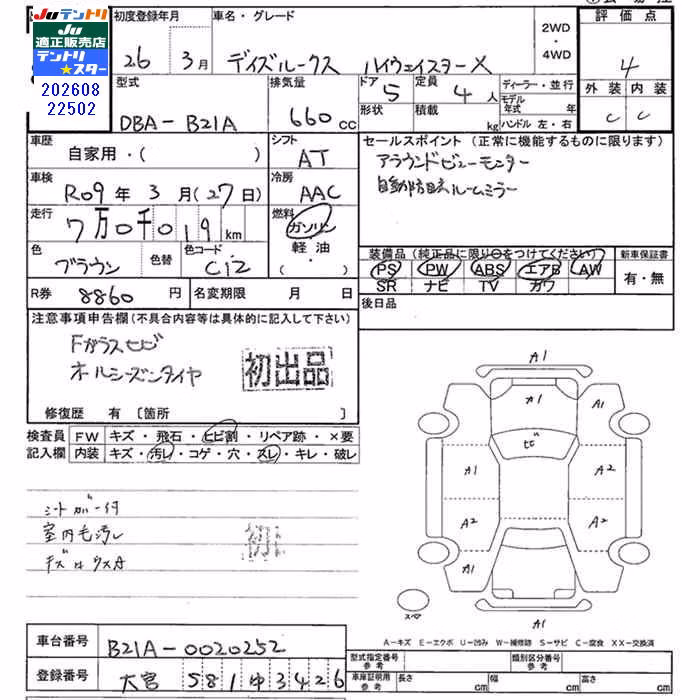 JUテントリ
JU
適正販売店
テントリ
★スター
202608
22502
初度登録年月
26 3月
車名・グレード
デイズルークス ハイウェイスターX
2WD
・
4WD
評価点
4
外装 内装
C C
型式
DBA-B21A
排気量
660cc
ドア
5
形状
定員
4人
積載
kg
ディーラー・並行
モデル年式 年
ハンドル 左・右
車歴
自家用・( )
シフト
AT
セールスポイント(正常に機能するものに限ります)
アラウンドビューモニター
自動防眩ルームミラー
車検
R09年3月(27日)
冷房
AAC
走行
7万0千019km
燃料
ガソリン
軽油
・
( )
色
ブラウン
色替
色コード
C12
装備品(純正品に限り○をつけてください)
PS PW ABS エアB AW
SR ナビ TV カワ
新車保証書
有・無
R券 8860円
名変期限 月 日
後日品
注意事項申告欄(不具合内容等は具体的に記入して下さい)
Fガラスヒビ
オールシーズンタイヤ
初出品
修復歴 有 [箇所 ]
検査員
記入欄
FW キズ・飛石・ヒビ割・リペア跡・×要
内装 キズ・汚レ・コゲ・穴・スレ・キレ・破レ
シートカバー付
室内毛汚レ
キズ・ウスA
初
A1
A1
A1
ヒビ
A1
A2
A2
A2
A1
A1
スペア
A-キズ E-エクボ U-凹み W-補修跡 S-サビ C-腐食 XX-交換済
車台番号
B21A-0020252
登録番号
大宮 581 ゆ 3426
型式指定番号
参考
類別区分番号
参考
車庫証明用
参考
長さ cm
幅 cm
高さ cm